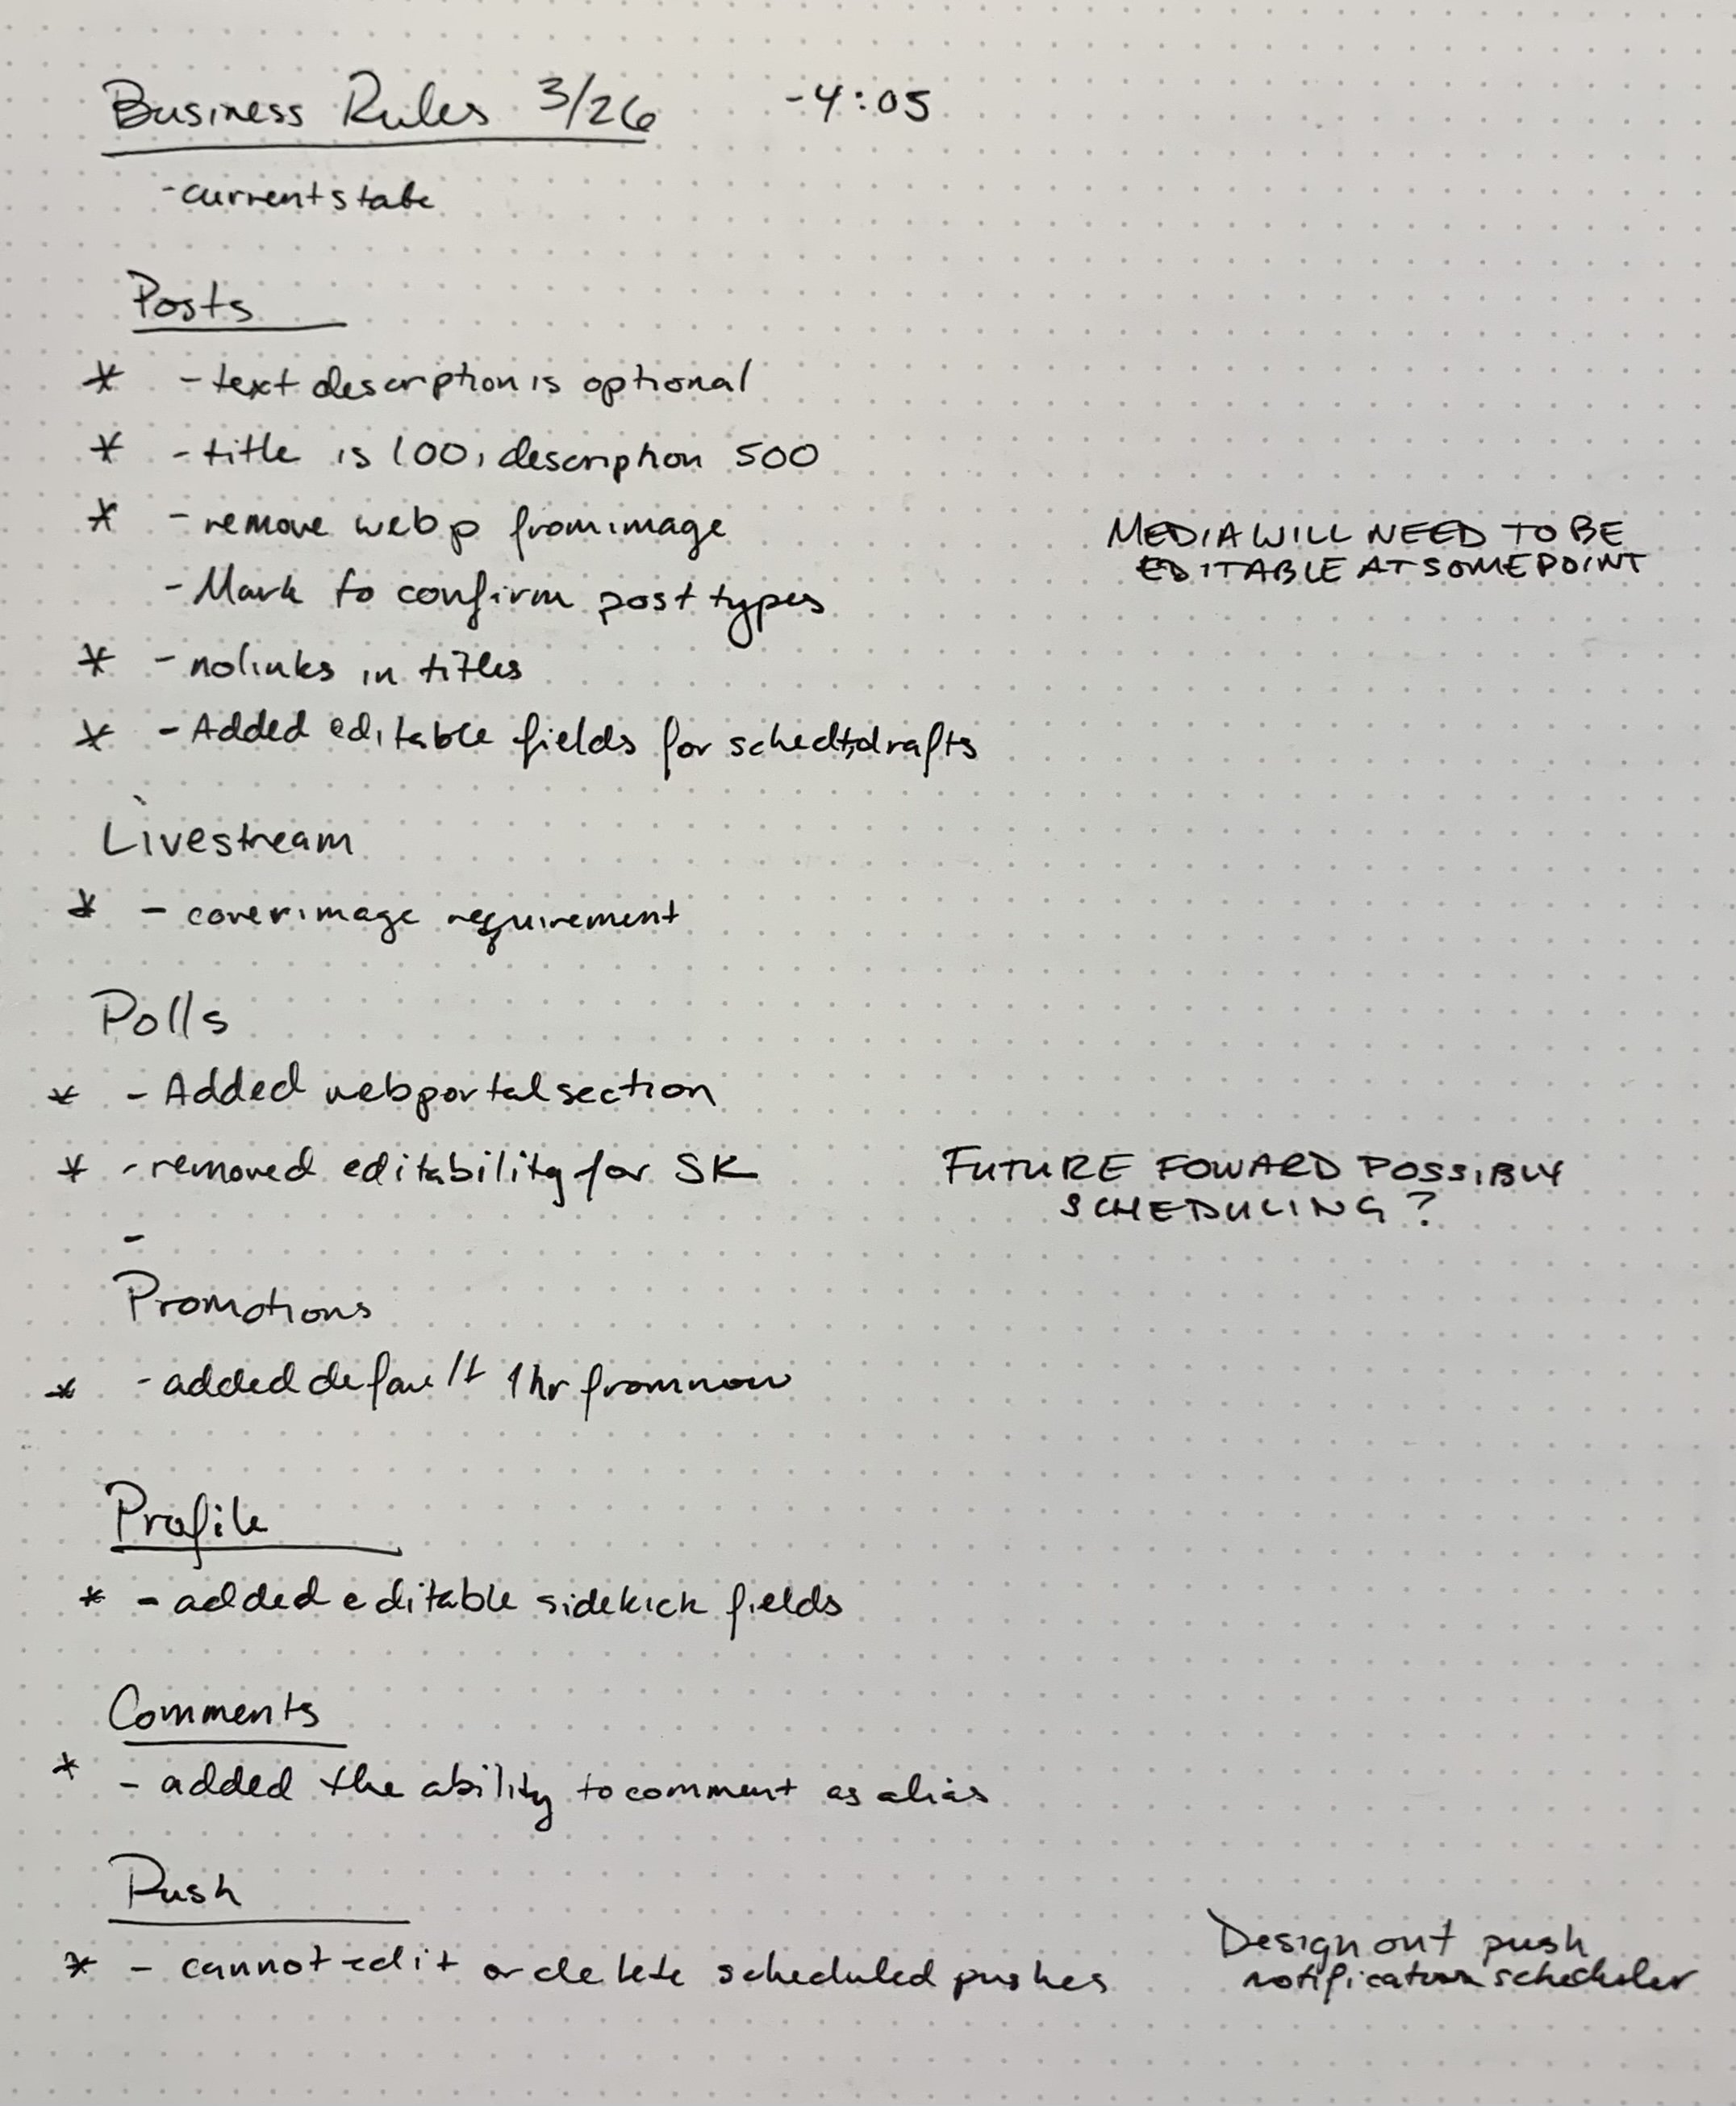 Business Rules 3/26 -4:05
- current state
Posts
* - text description is optional
* - title is 100, description 500
* - remove webp from image
MEDIA WILL NEED TO BE
EDITABLE AT SOME POINT
- Mark to confirm post types
* - no links in titles
* - Added editable fields for sched + drafts
Livestream
* - cover image requirement
Polls
* - Added web portal section
* - removed editability for SK
FUTURE FOWARD POSSIBLY
SCHEDULING?
-
Promotions
* - added default 1hr from now
Profile
* - added editable sidekick fields
Comments
* - added the ability to comment as alias
Push
* - cannot edit or delete scheduled pushes
Design out push
notification scheduler